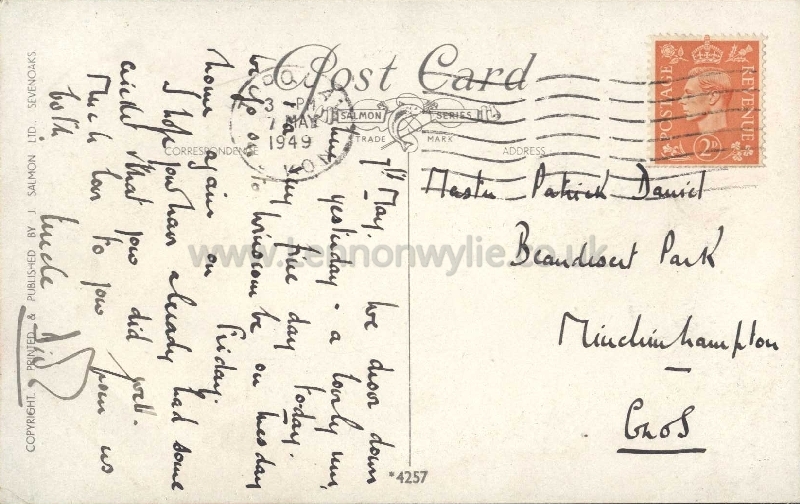 Post Card
SALMON SERIES
TRADE MARK
CORRESPONDENCE
ADDRESS
3 - PM
7 MAY
1949
POSTAGE REVENUE
2D
7th May.
We drove down
here yesterday - a lovely run,
& a very fine day today.
We go on to Winscombe on Tuesday
home again on Friday.
I hope you have already had some
cricket & that you did well.
Much love to you from us
both
Uncle
Master Patrick Daniel
Beaudesert Park
Minchinhampton
Glos
*4257
COPYRIGHT. PRINTED & PUBLISHED BY J. SALMON LTD. SEVENOAKS.
www.Lennonwylie.co.uk